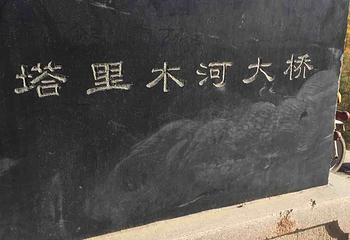 塔里木河大桥